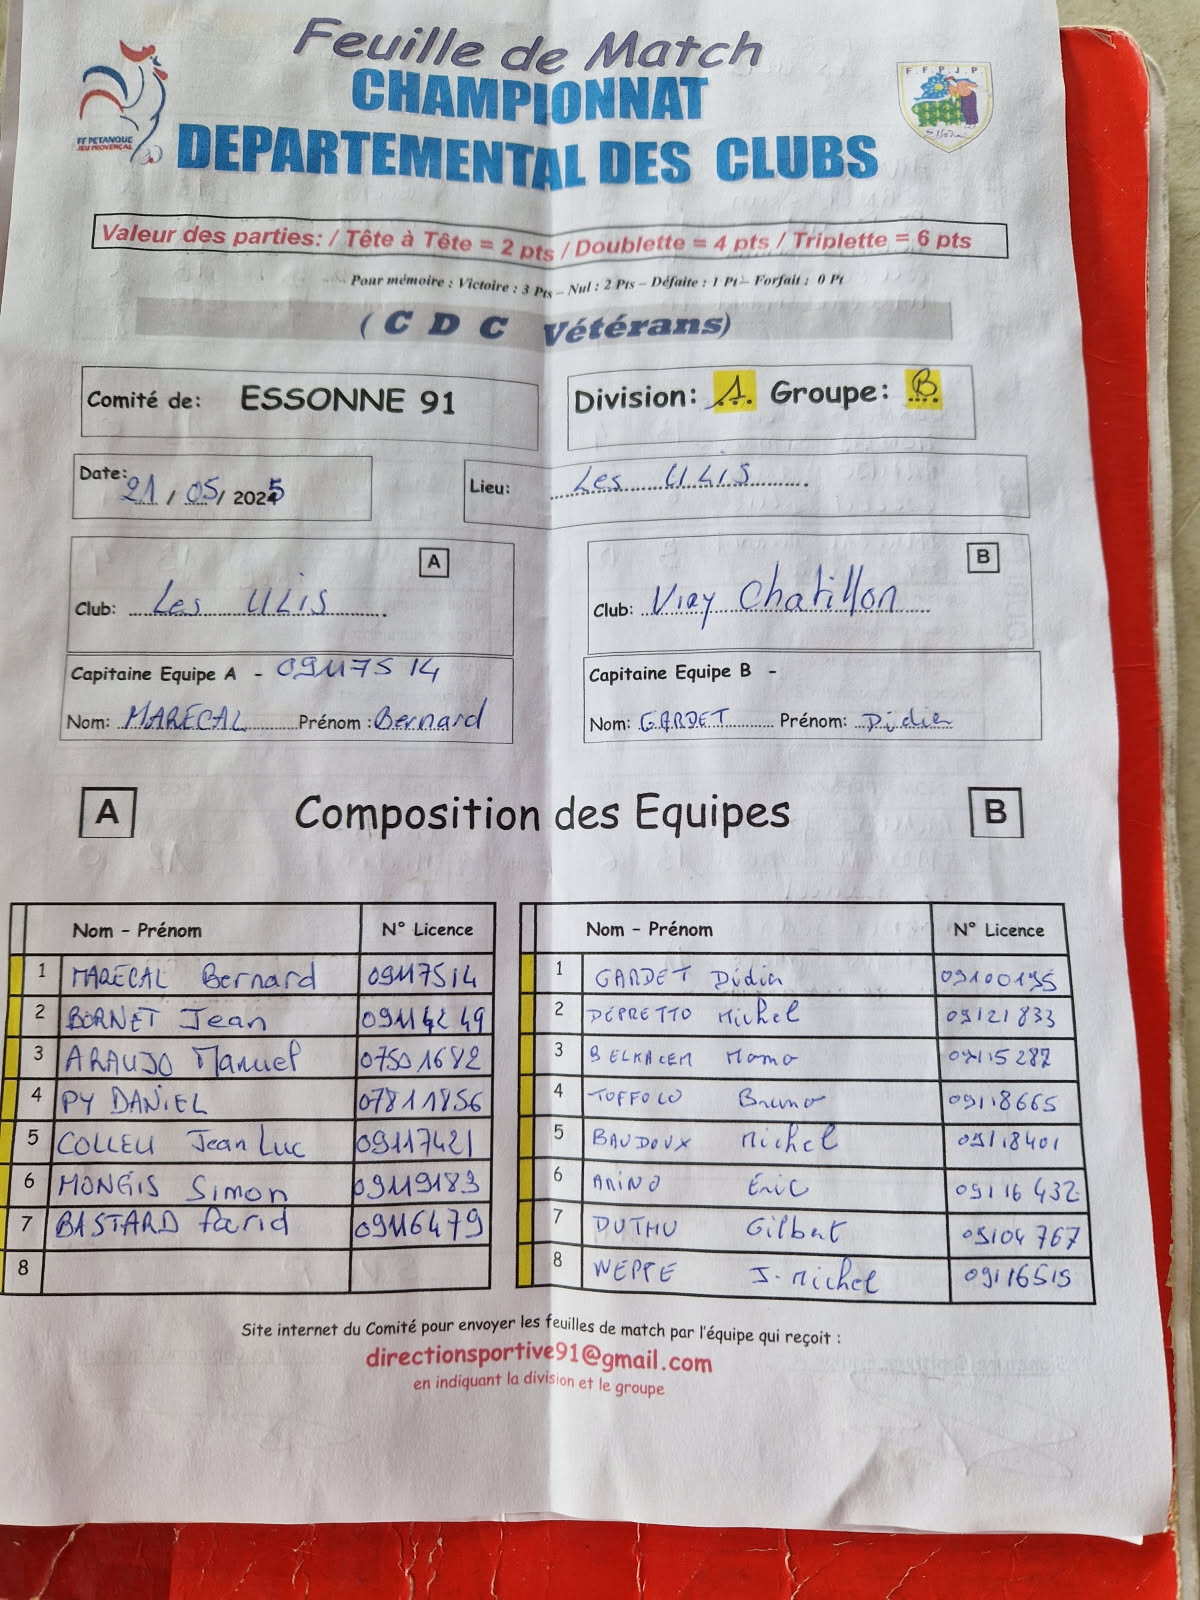 Feuille de Match
CHAMPIONNAT
DEPARTEMENTAL DES CLUBS
FF PETANQUE
JEU PROVENÇAL
F.F.P.J.P.
Valeur des parties: / Tête à Tête = 2 pts / Doublette = 4 pts / Triplette = 6 pts
Pour mémoire : Victoire : 3 Pts – Nul : 2 Pts – Défaite : 1 Pt – Forfait : 0 Pt
( C D C Vétérans)
Comité de: ESSONNE 91
Division: A Groupe: B
Date: 21 / 05 / 2025
Lieu: Les ULIS
A
Club: Les ULIS
B
Club: Viry Chatillon
Capitaine Equipe A - 09117514
Nom: MARECAL Prénom : Bernard
Capitaine Equipe B -
Nom: GARDET Prénom: Didier
A Composition des Equipes B
Nom - Prénom N° Licence
1 MARECAL Bernard 09117514
2 BORNET Jean 09114249
3 ARAUJO Manuel 07501682
4 PY DANIEL 07811856
5 COLLEU Jean Luc 09117421
6 MONGIS Simon 09119183
7 BASTARD farid 09116479
8
Nom - Prénom N° Licence
1 GARDET Didier 09100195
2 DEPRETTO Michel 09121833
3 BELKACEM Momo 09115287
4 TOFFOLO Bruno 09118665
5 BAUDOUX Michel 09118401
6 ARINO Eric 09116432
7 DUTHU Gilbert 09104767
8 WEPPE J. Michel 09116519
Site internet du Comité pour envoyer les feuilles de match par l'équipe qui reçoit :
directionsportive91@gmail.com
en indiquant la division et le groupe